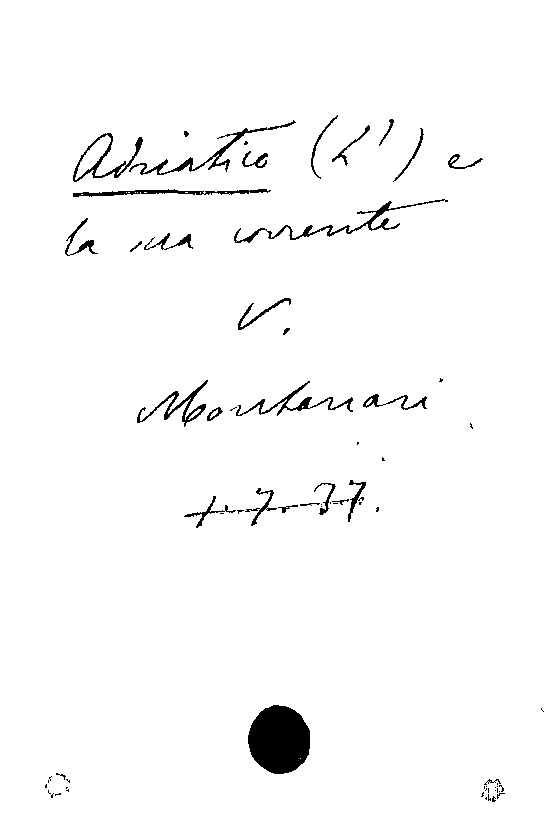 Adriatico (L') e
la sua corrente
V.
Montanari
1.7.37.